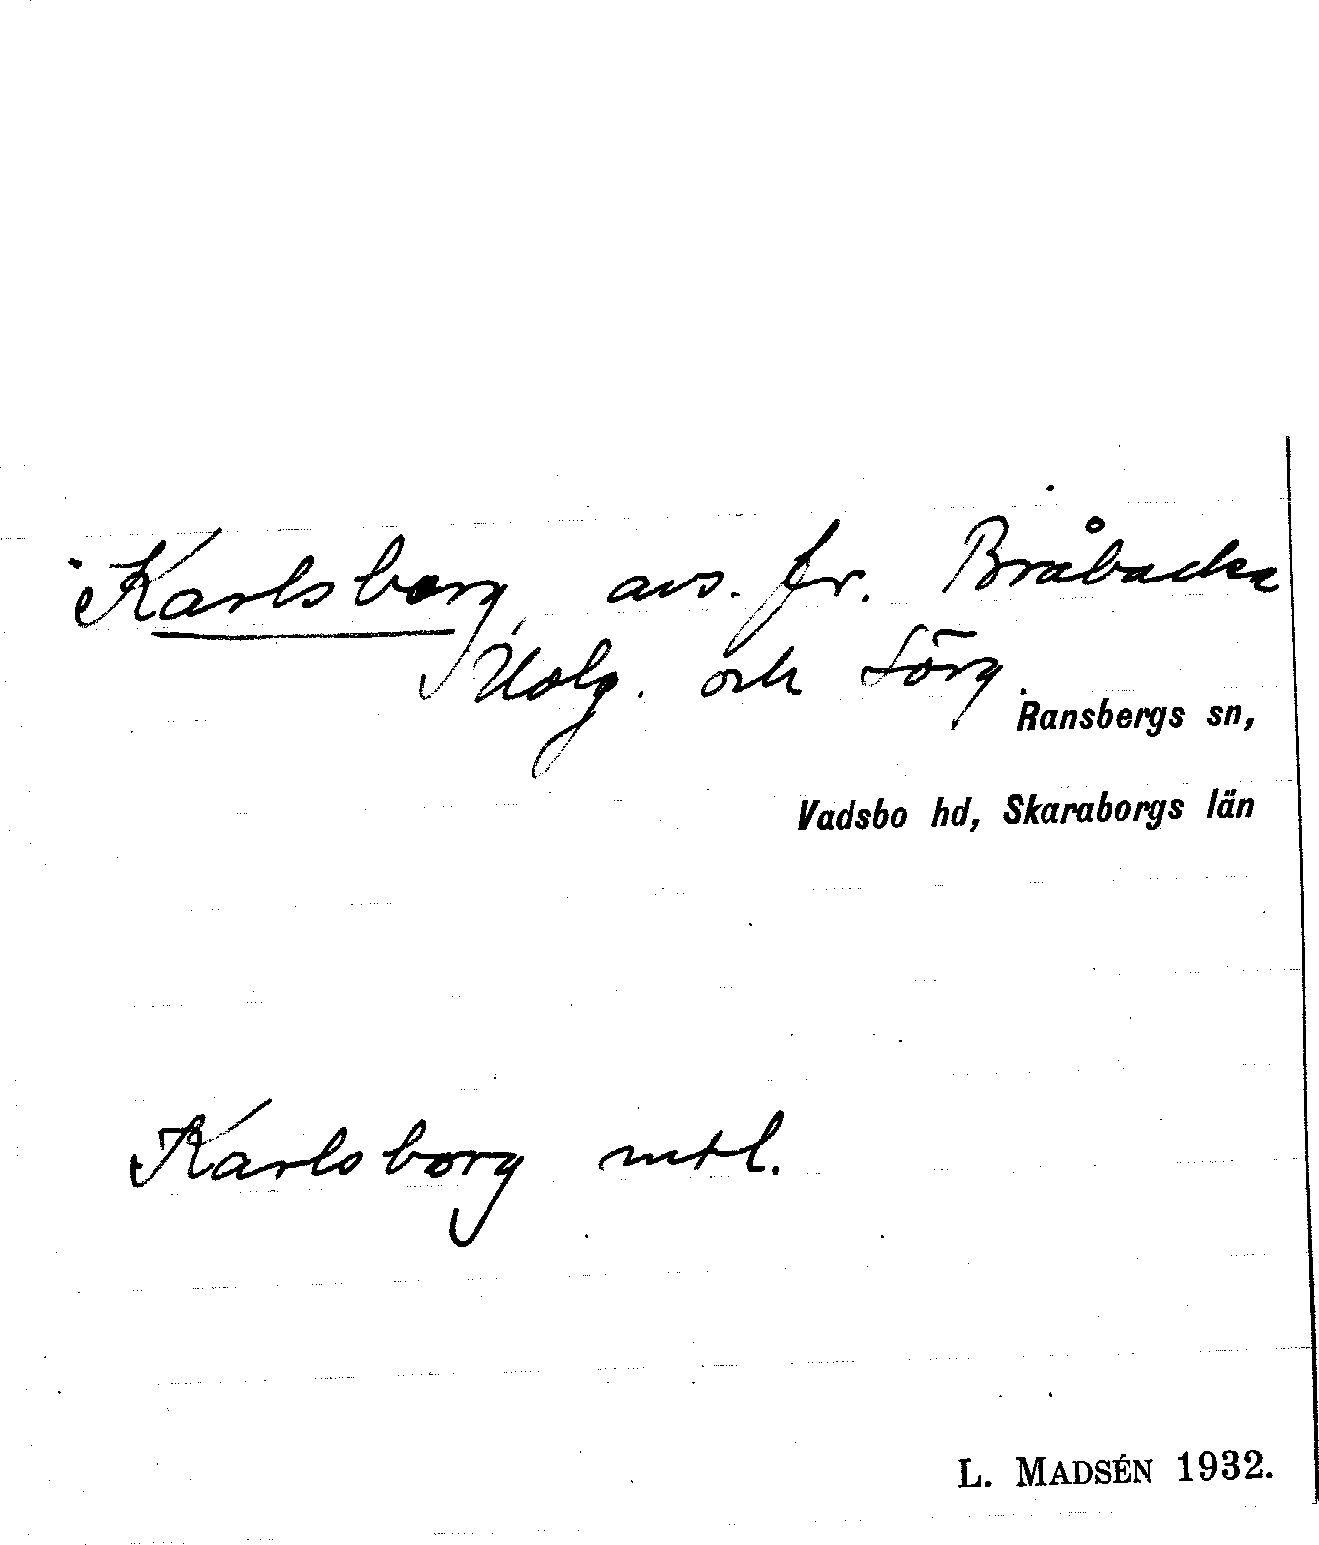 Karlsborg, avs. fr. Bråbacka
Holg. och Sörg.
Ransbergs sn,
Vadsbo hd, Skaraborgs län
Karlsborg mtl.
L. MADSÉN 1932.